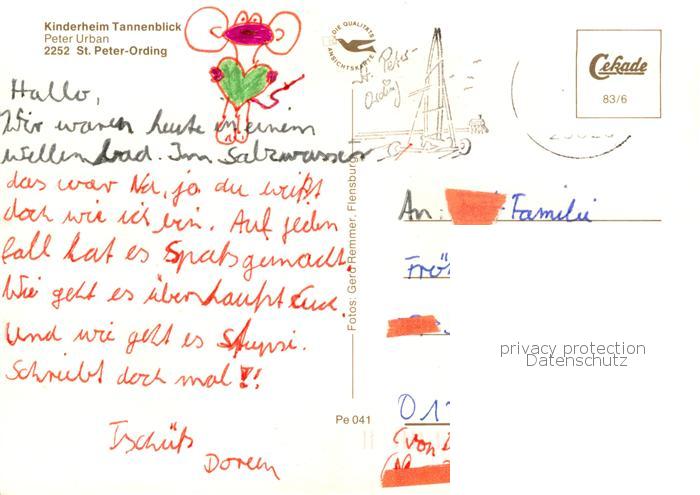 Kinderheim Tannenblick
Peter Urban
2252 St. Peter-Ording
Hallo,
Wir waren heute in einem
Wellenbad. Im Salzwasser
das war Na, ja du weißt
doch wie ich bin. Auf jeden
fall hat es Spaß gemacht.
Wie geht es überhaupt Euch.
Und wie geht es Stupsi.
Schreibt doch mal!!
Tschüß
Doreen
DIE QUALITÄTS
ANSICHTSKARTE
St. Peter-
Ording
Fotos: Gerd Remmer, Flensburg
Pe 041
Cekade
83/6
An: Familie
Frö
01
(von
privacy protection
Datenschutz